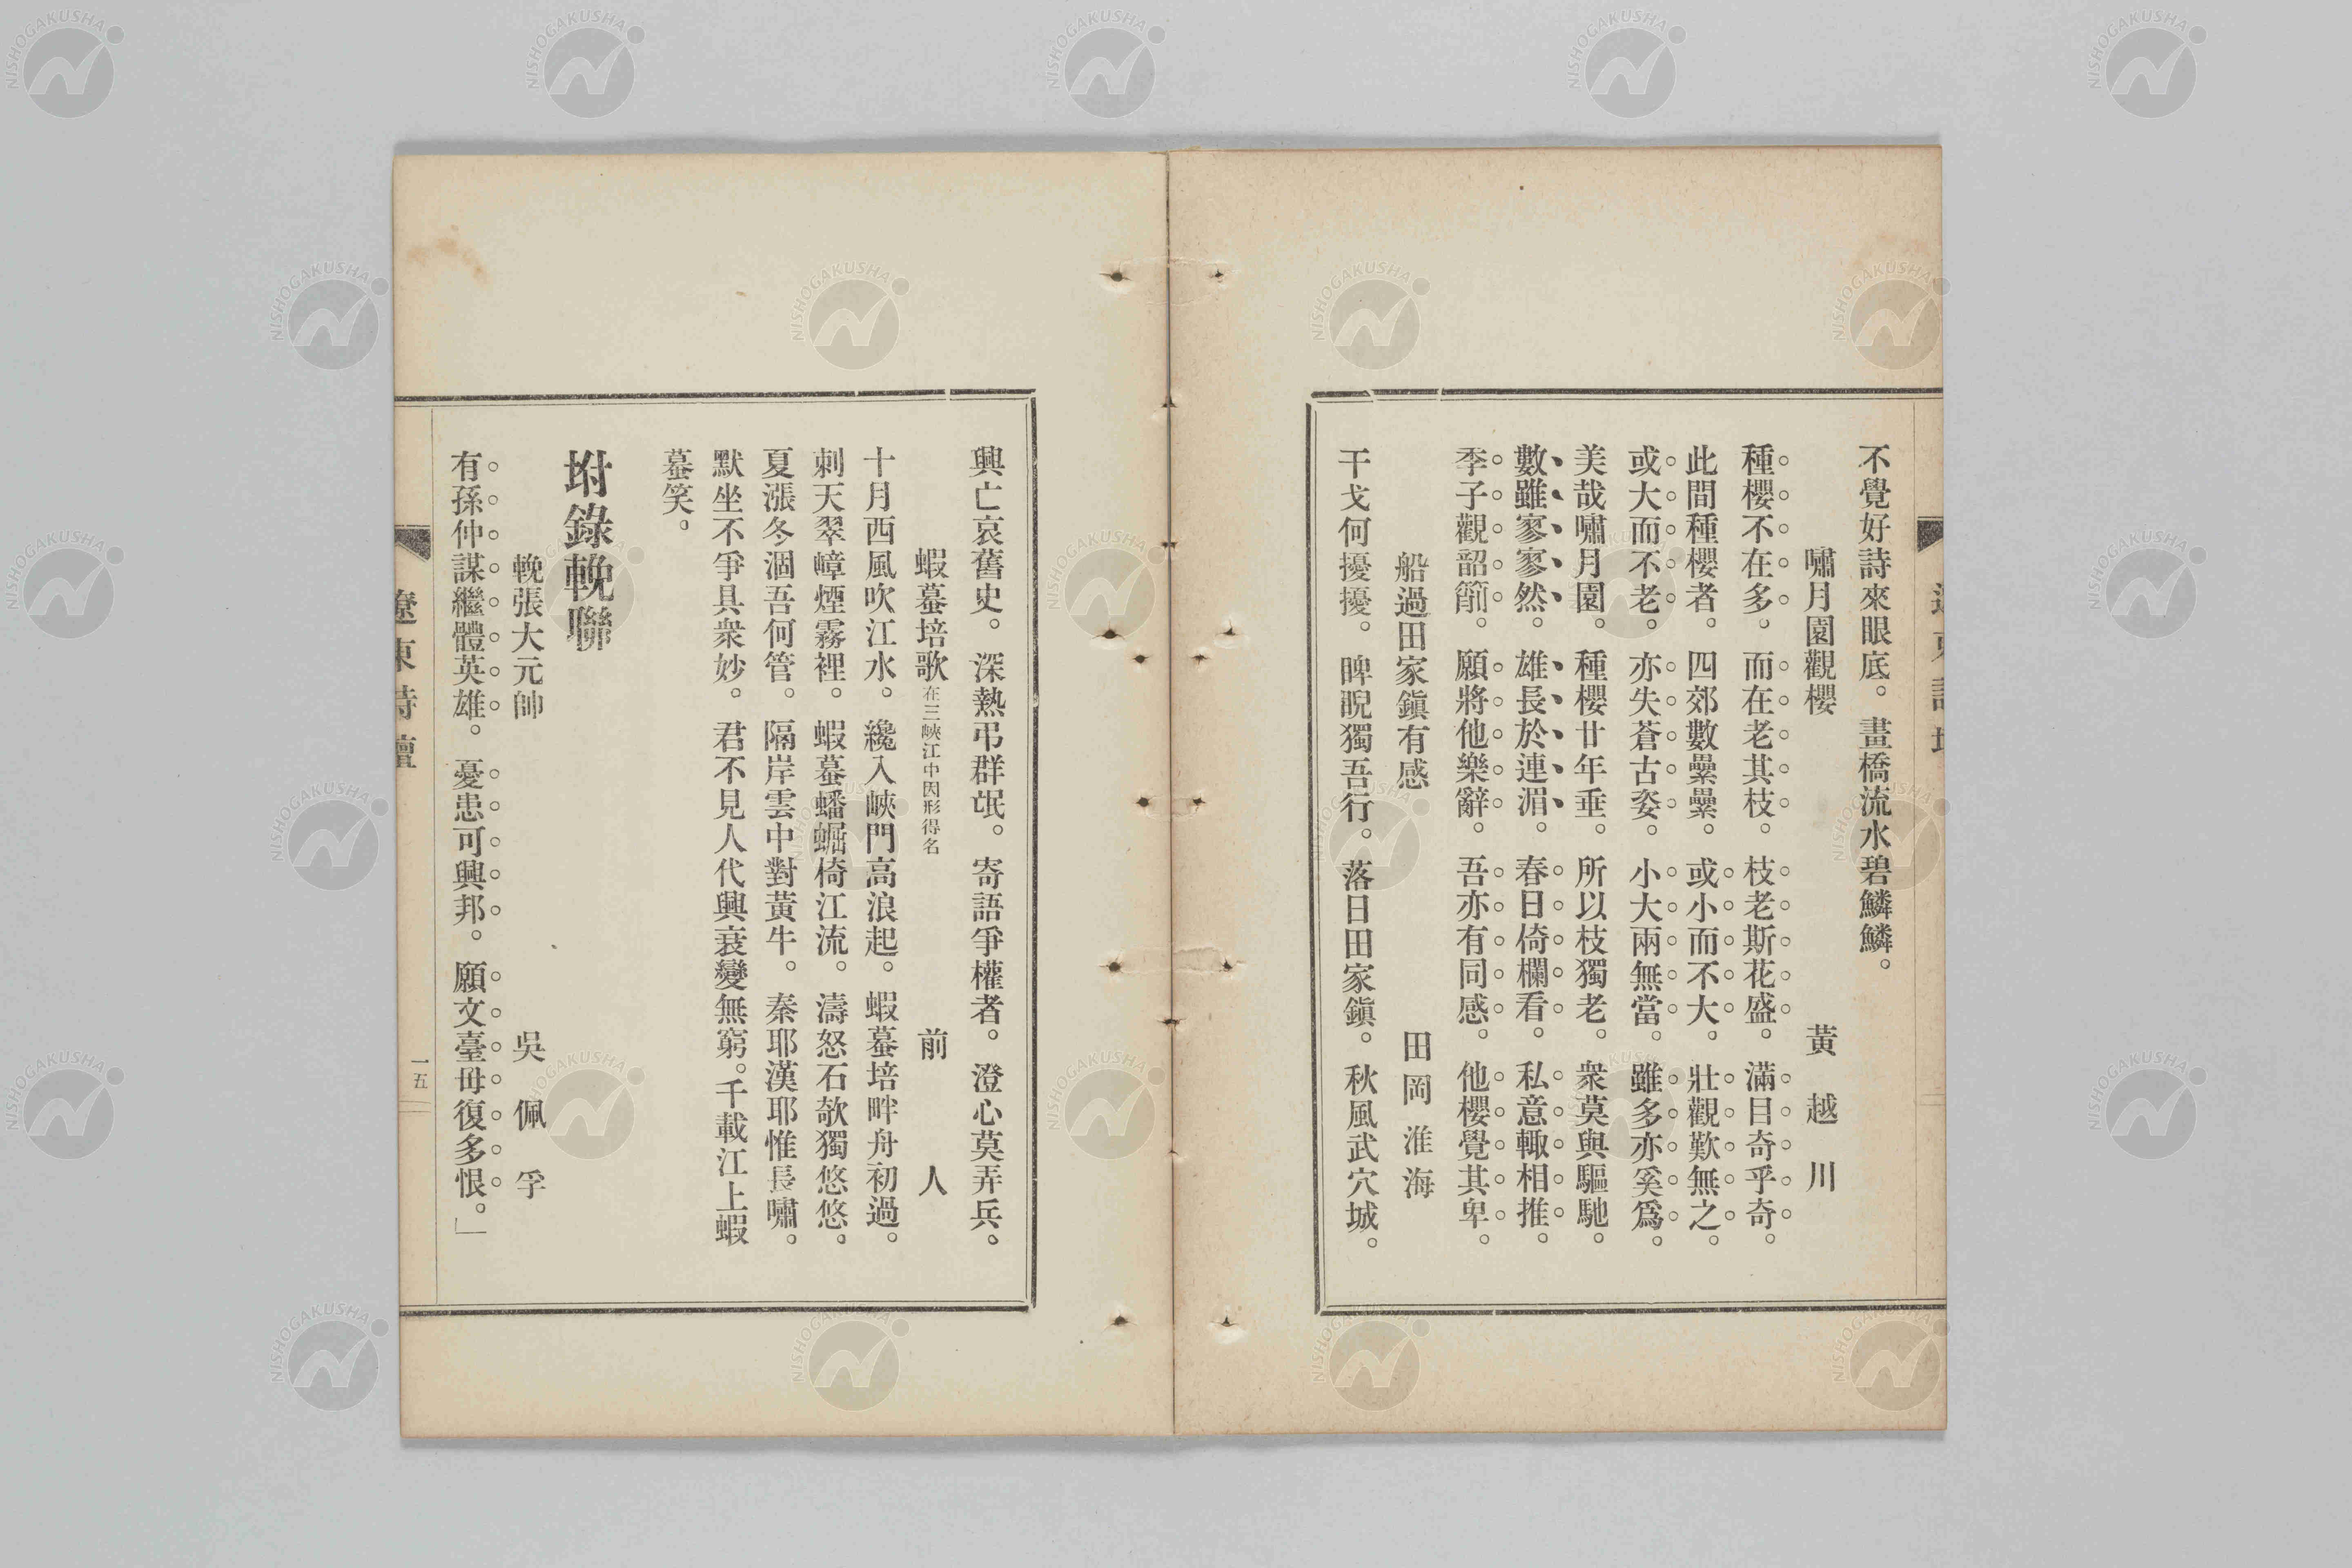 不覺好詩來眼底。畫橋流水碧鱗鱗。
嘯月園觀櫻　黃越川
種櫻不在多。而在老其枝。枝老斯花盛。滿目奇乎奇。
此間種櫻者。四郊數纍纍。或小而不大。壯觀歎無之。
或大而不老。亦失蒼古姿。小大兩無當。雖多亦奚爲。
美哉嘯月園。種櫻廿年垂。所以枝獨老。衆莫與驅馳。
數雖寥寥然。雄長於連湄。春日倚欄看。私意輙相推。
季子觀韶箾。願將他樂辭。吾亦有同感。他櫻覺其卑。
船過田家鎭有感　田岡淮海
干戈何擾擾。睥睨獨吾行。落日田家鎭。秋風武穴城。
興亡哀舊史。深熱弔群氓。寄語爭權者。澄心莫弄兵。
蝦蟇培歌在三峽江中因形得名　前人
十月西風吹江水。纔入峽門高浪起。蝦蟇培畔舟初過。
刺天翠嶂煙霧裡。蝦蟇蟠蜛椅江流。濤怒石欹獨悠悠。
夏漲冬涸吾何管。隔岸雲中對黃牛。秦耶漢耶惟長嘯。
默坐不爭具衆妙。君不見人代興衰變無窮。千載江上蝦
蟇笑。
坿錄輓聯
輓張大元帥　吳佩孚
有孫仲謀繼體英雄。憂患可興邦。願文臺毋復多恨。」
遼東詩壇
一五